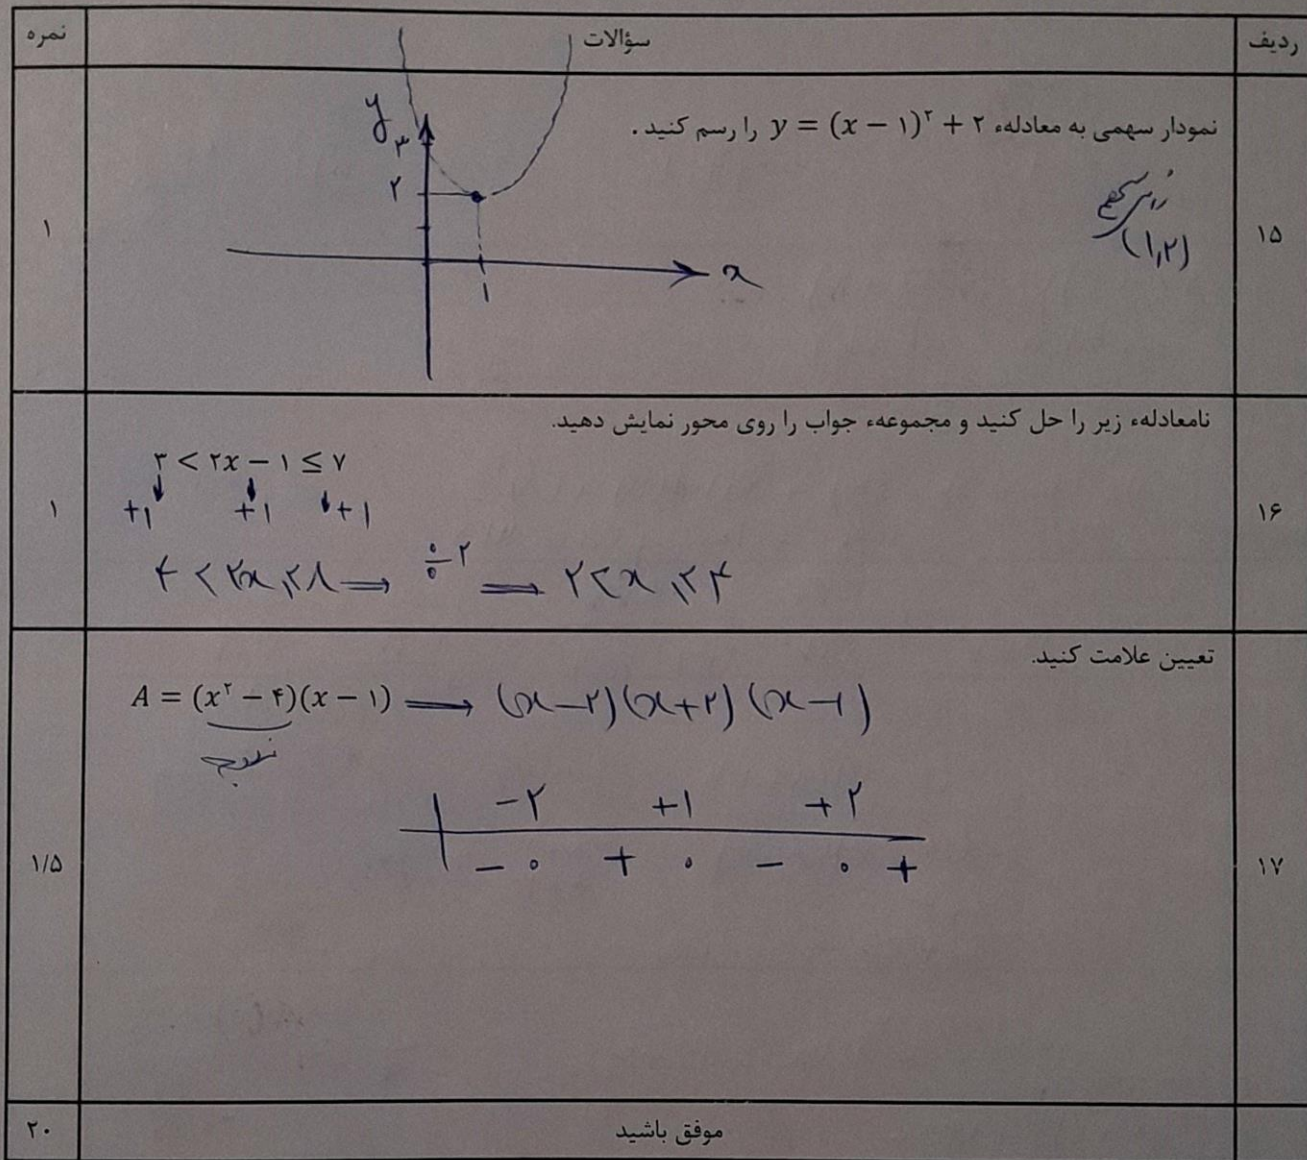 ردیف سؤالات نمره
۱۵ نمودار سهمی به معادلهء y = (x − ۱)۲ + ۲ را رسم کنید . ۱
(۱,۲)
y
۳
۲
x
۱
نامعادلهء زیر را حل کنید و مجموعهء جواب را روی محور نمایش دهید.
۳ < ۲x − ۱ ≤ ۷
۱۶ ۱
+۱ +۱ +۱
۴ < ۲x ≤ ۸ ⟹ ÷۲ ⟹ ۲ < x ≤ ۴
تعیین علامت کنید.
A = (x۲ − ۴)(x − ۱) ⟶ (x−۲)(x+۲)(x−۱)
مزدوج
−۲ +۱ +۲
۱۷ − ۰ + ۰ − ۰ + ۱/۵
موفق باشید ۲۰